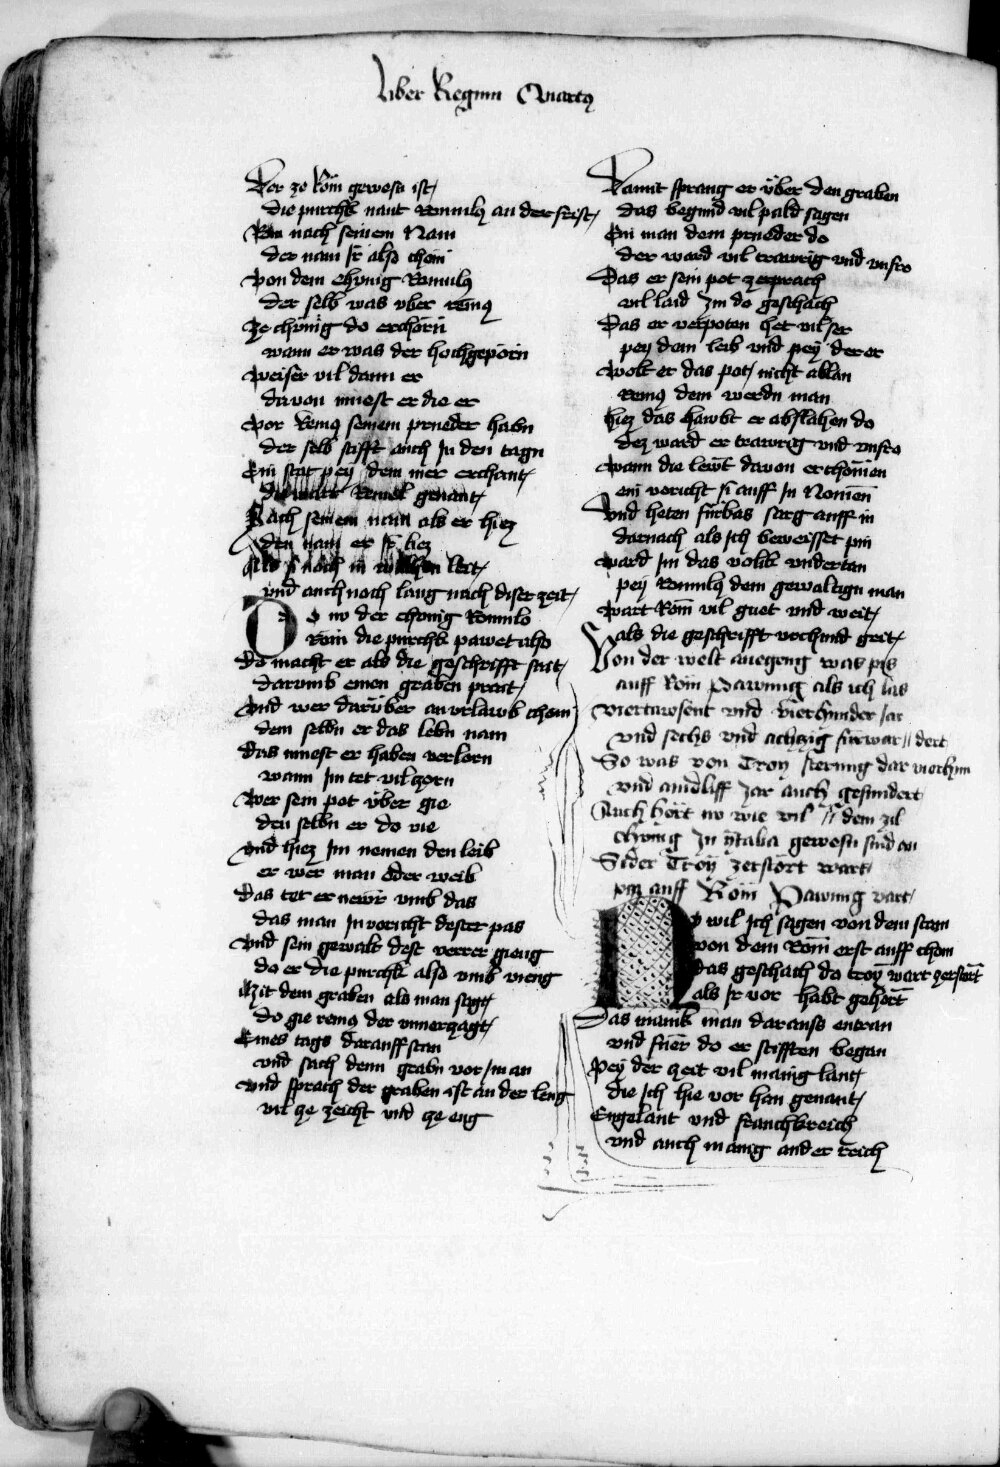 Liber Regum Quartus
Der ze Rom gewesn ist
die purchk nant Romulus an der frist
Rom nach seinem Nam
der nam ir also cham
Von dem chunig Romulus
der selb was uber remus
Ze chunig do erchorn
wann er was der hochgeporn
Weiser vil dann er
davon muest er die er
Vor Remus seinem prueder habn
der selb stifft auch In den tagn
Ein stat pey dem mer erchant
genant
Nach seinem nam als er hiez
den nam er ir liez
noch in leit
vnd auch noch lang nach diser zeit
Do nw der chonig Romulo
Rom die purchk pawet also
Do macht er als die geschrifft sait
darumb einen graben prait
Vnd wer daruber an vrlawb chom
dem selbn er das lebn nam
das muest er haben verlorn
wann Im tet vil zorn
Wer sein pot über gie
den selbn er do vie
vnd hiez Im nemen den leib
er wer man oder weib
Das tet er newr vmb das
das man In voricht dester pas
Vnd sein gewalt dest verrer gieng
do er die purchk also vmb vieng
Mit dem graben als man sagt
do gie remus der vnuerzagt
Eines tags darauff stan
vnd sach denn grabn vor Im an
vnd sprach der graben ist an der leng
vil ze zeicht vnd ze eng
Damit sprang er über den graben
das begund vil pald sagen
Ein man dem prueder do
der ward vil trawrig vnd vnfro
Das er sein pot zerprach
vil laid Im do geschach
Das er verpoten het vil ser
pey dem leib vnd pey der er
Wolt er das pot nicht ablan
remus dem werdn man
hiez das hawbt er abslahen do
dez ward er trawrig vnd vnfro
Wann die lewt davon erchomen
ein voricht si auff In Nomen
Vnd heten furbas sarg auff in
darnach als Ich beweisset pin
ward Im das volkk vndertan
pey Romulus dem gewaltign man
Wart Rom vil guet vnd weit
als die geschrifft vrchund geit
Von der welt anegeng was pis
auff Rom Pawung als ich las
Viertawsent vnd vierhunder Jar
vnd sechs vnd achtzig furwar dort
So was von Troy sterung dar vierhun
vnd aindliff Jar auch gesundert
Auch hört nw wie vil dem zil
chonig In ytalia gewesn sind
Sider Troy zerstört wart
piz auff Rom Pawung vart
Nv wil Ich sagen von dem stam
von dem Rom erst auff chom
das geschach do troy wart zerstort
als Ir vor habt gehort
Das manik man darauss entran
vnd fuer do er stifften began
Pey der zeit vil manig lant
die Ich hie vor han genant
Engelant vnd franchkreich
vnd auch manig ander reich